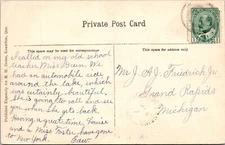 Private Post Card
This space may be used for correspondence.
This space for address only.
I called on my old school
teacher Miss Dunn. We
had an automobile ride
around the lake, which
was certainly beautiful.
She is going to call and see
you when she gets back.
Having a great time. Louise
and a Miss Foster have gone
to New York.
Mr. J. A. J. Friedrich Jr
Grand Rapids
Michigan